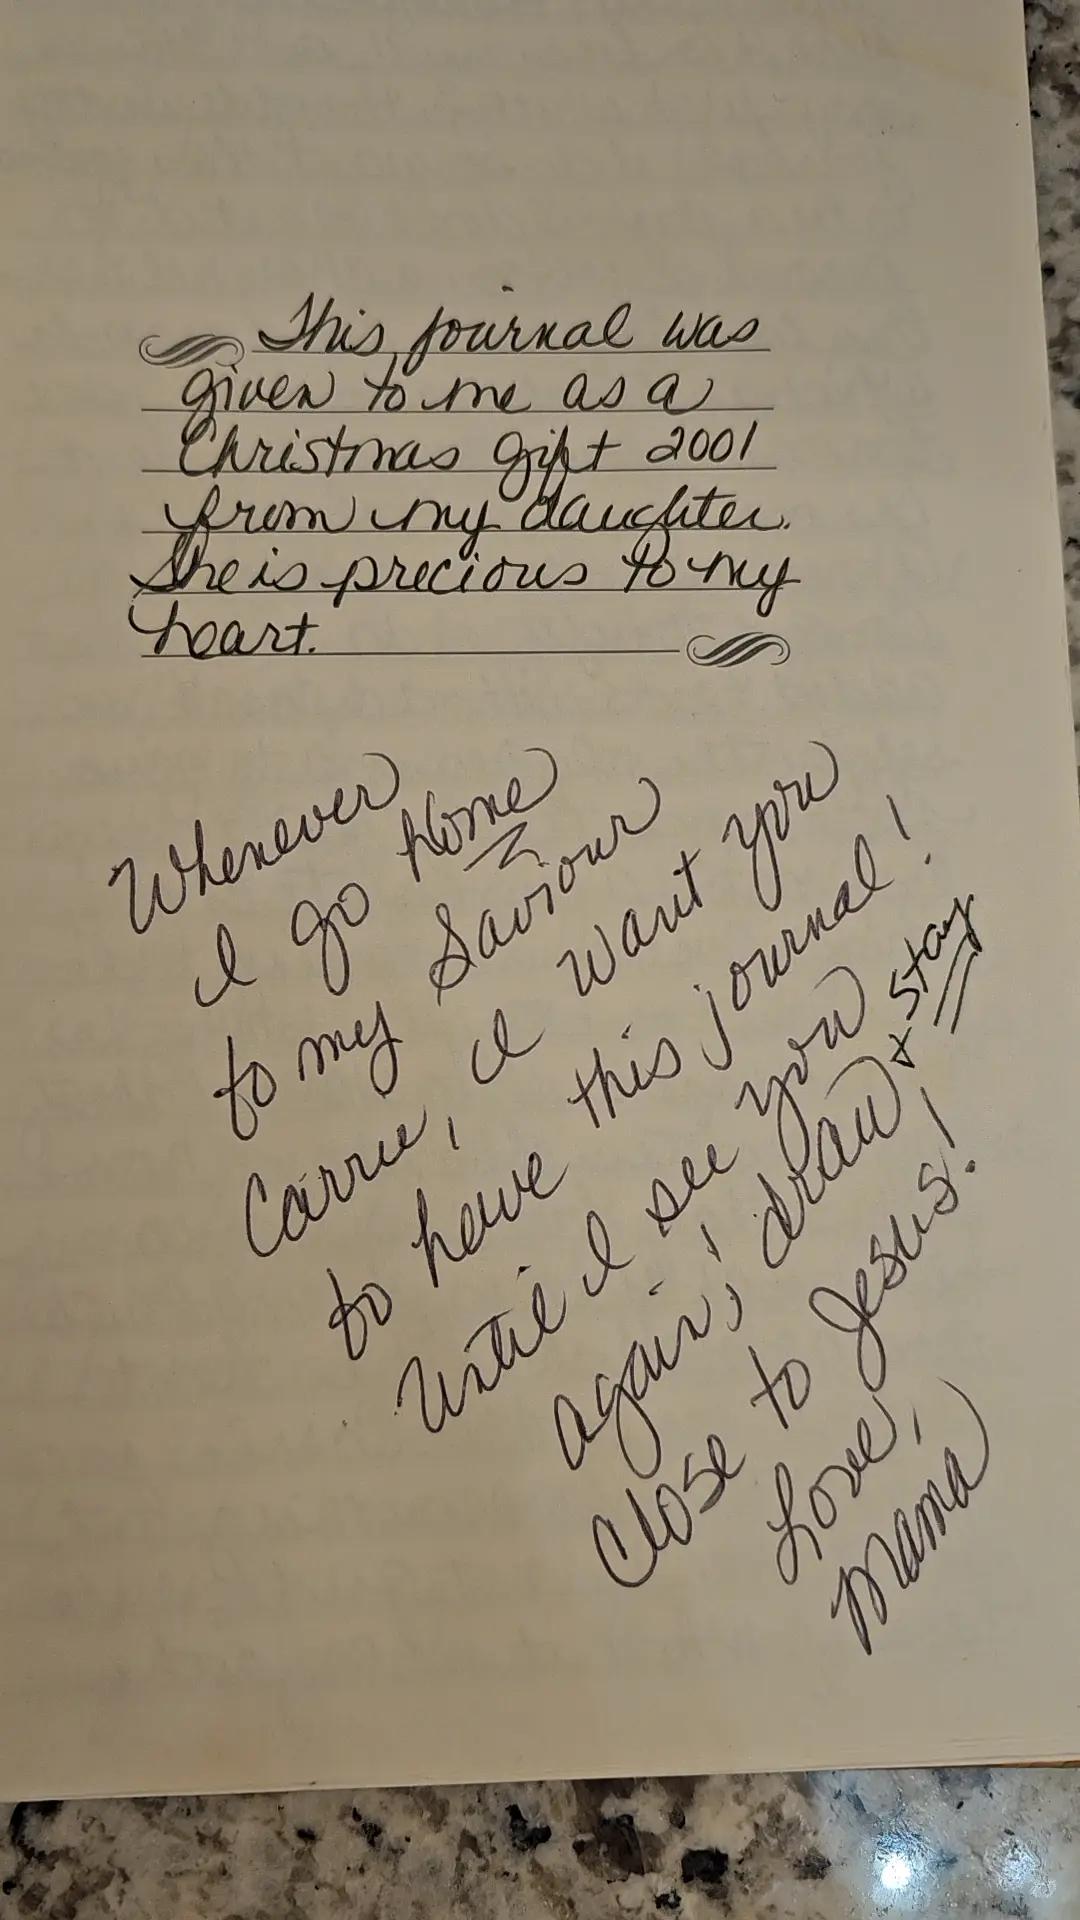 This journal was
given to me as a
Christmas gift 2001
from my daughter.
She is precious to my
heart.
Whenever
I go home
to my Saviour
Carrie, I want you
to have this journal!
Until I see you
again; draw & stay
close to Jesus!
Love,
Mama